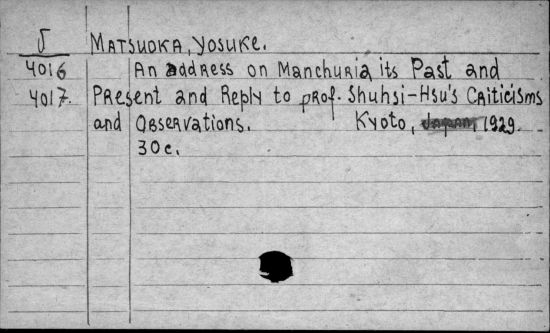 J MATSUOKA, YOSUKE.
4016 An address on Manchuria its Past and
4017. Present and Reply to prof. Shuhsi-Hsu's Criticisms
and Observations. Kyoto, Japan, 1929.
30c.